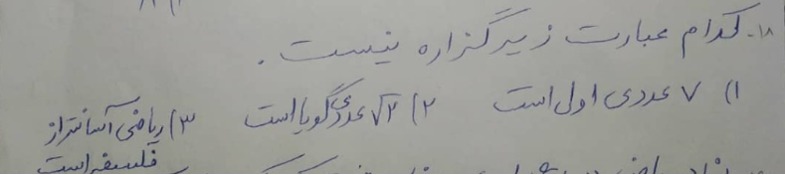 ۱۸. کدام عبارت زیر گزاره نیست.
۱) ۷ عددی اول است ۲) √۲ عددی گویا است ۳) ریاضی آسانتر از
فلسفه است